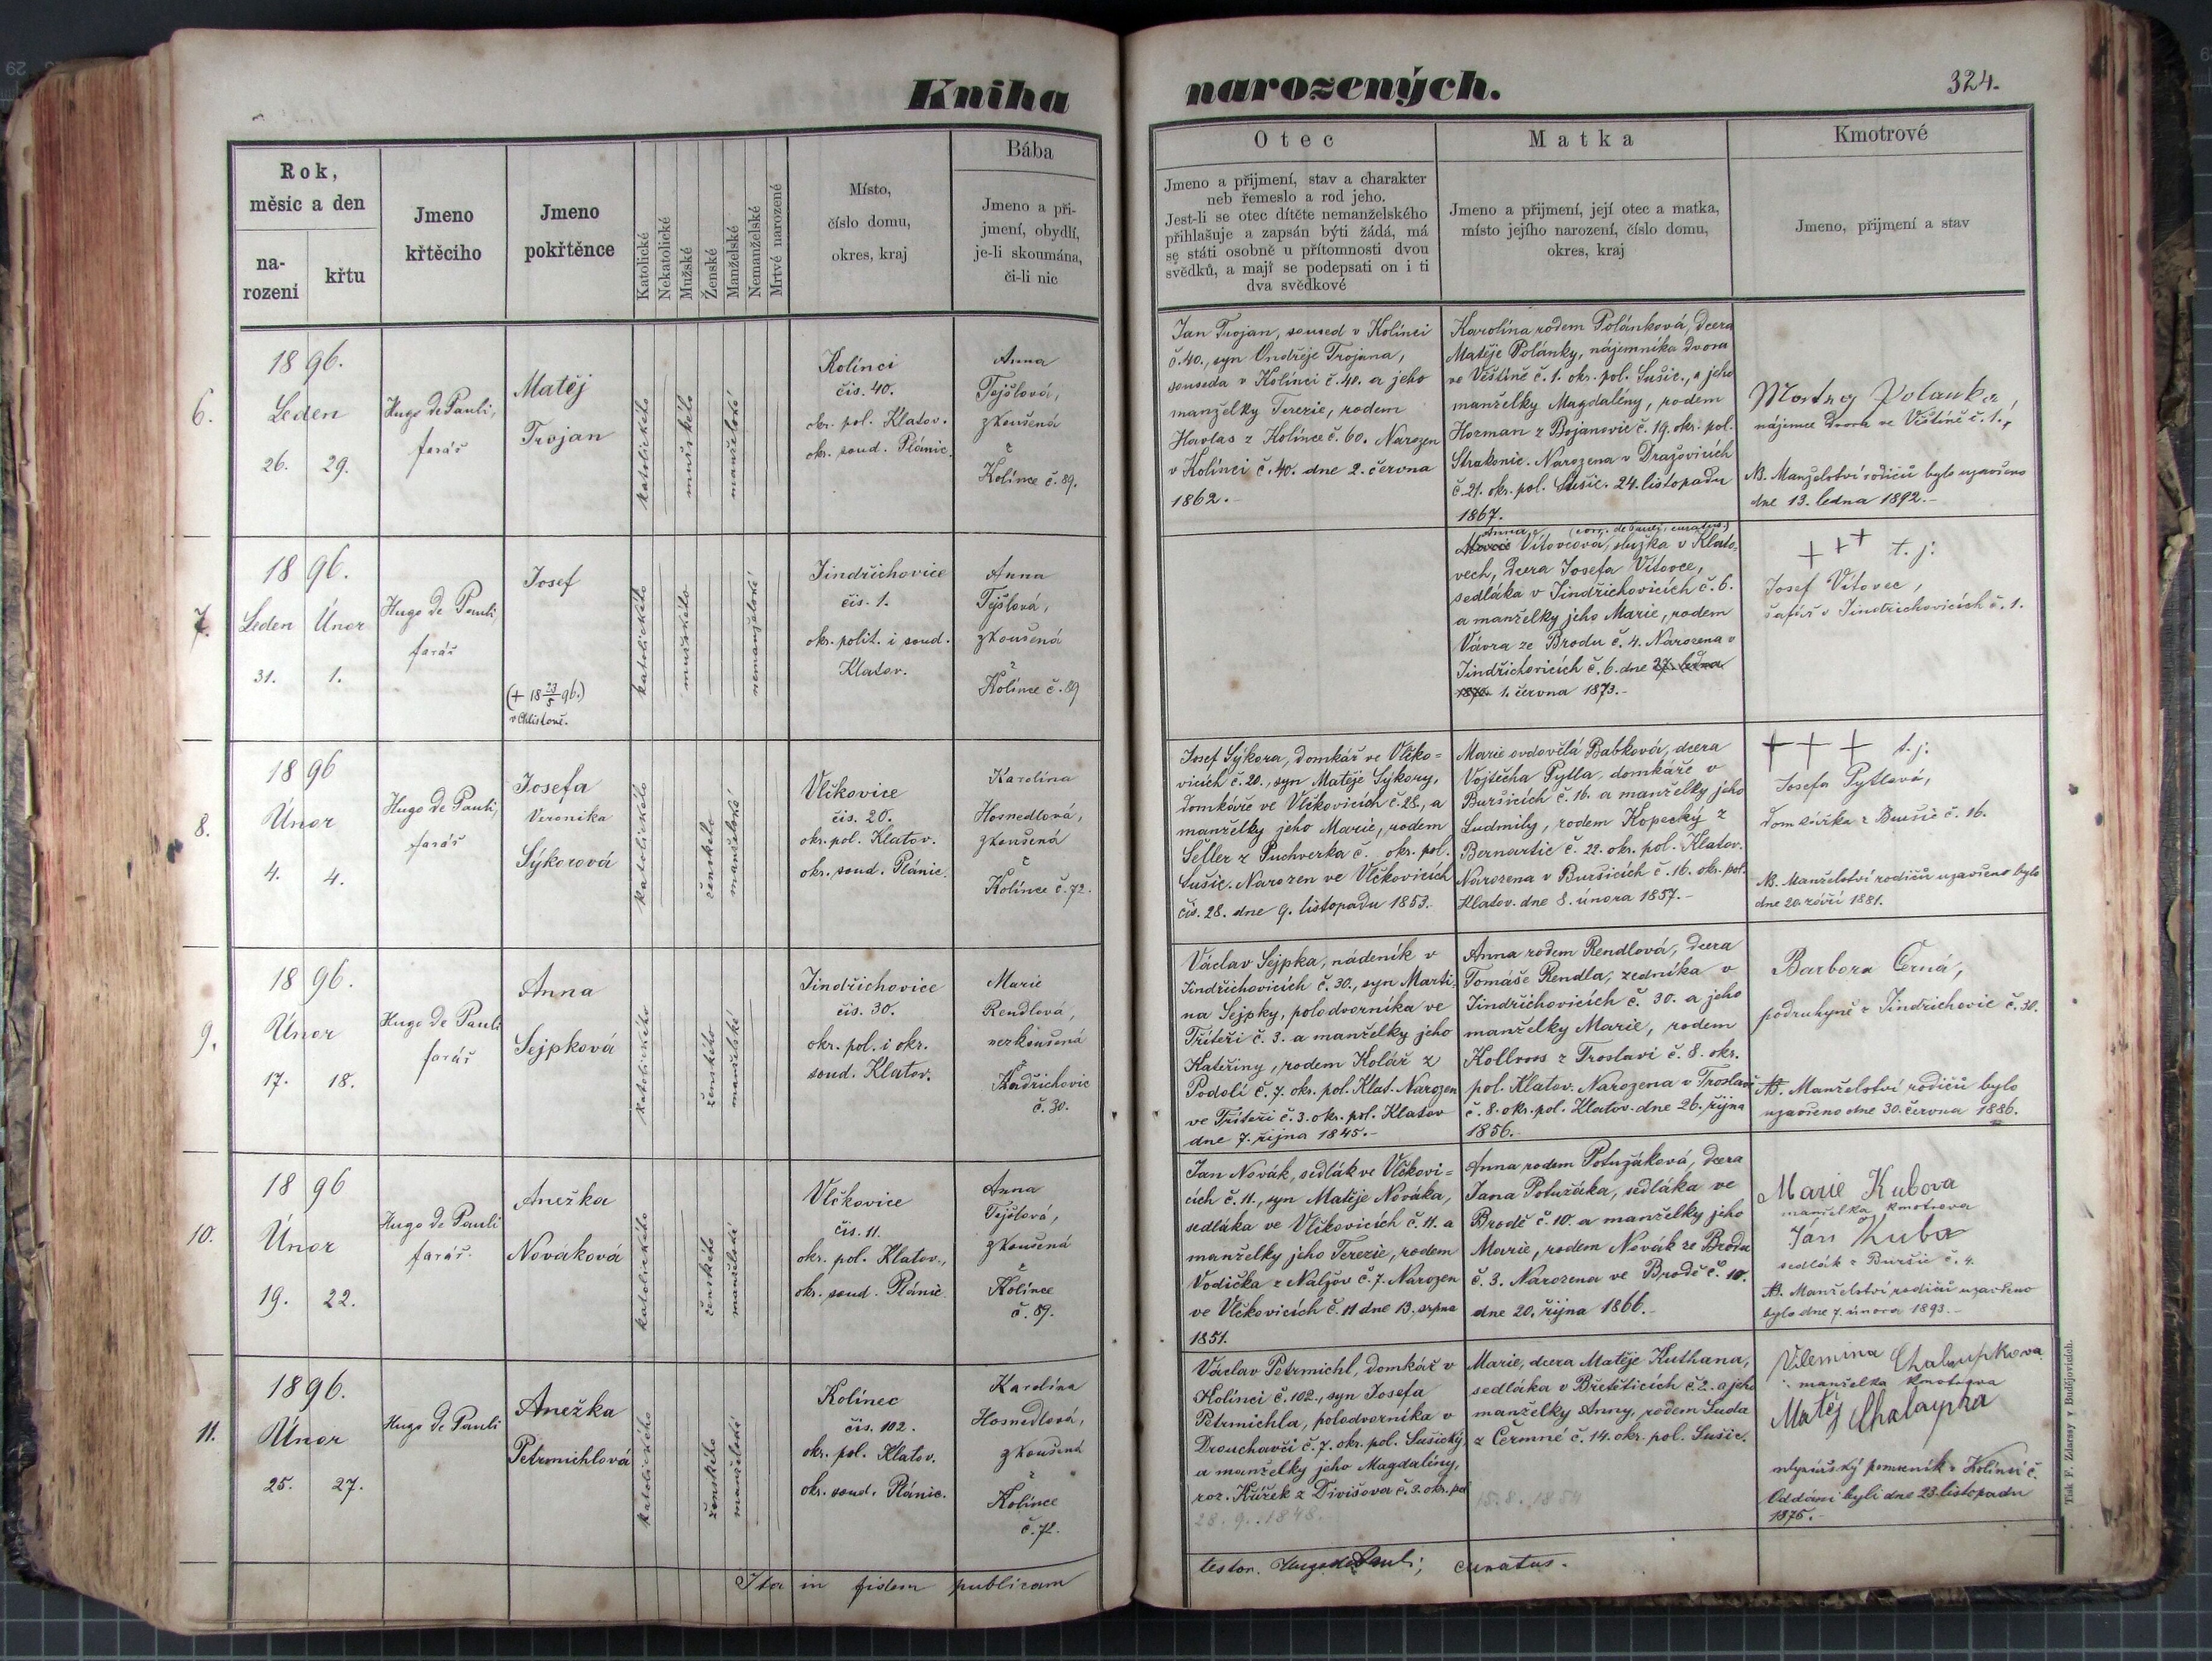 Kniha
narozených.
324.
Rok,
měsíc a den
na-
rození
křtu
Jmeno
křtěcího
Jmeno
pokřtěnce
Katolické
Nekatolické
Mužské
Ženské
Manželské
Nemanželské
Mrtvé narozené
Místo,
číslo domu,
okres, kraj
Bába
Jmeno a při-
jmení, obydlí,
je-li skoumána,
či-li nic
Otec
Jmeno a přijmení, stav a charakter
neb řemeslo a rod jeho.
Jest-li se otec dítěte nemanželského
přihlašuje a zapsán býti žádá, má
se státi osobně u přítomnosti dvou
svědků, a mají se podepsati on i ti
dva svědkové
Matka
Jmeno a přijmení, její otec a matka,
místo jejího narození, číslo domu,
okres, kraj
Kmotrové
Jmeno, přijmení a stav
6.
1896.
Leden
26. 29.
Hugo de Pauli,
farář
Matěj
Trojan
katolického
mužského
manželské
Kolínci
čís. 40.
okr. pol. Klatov.
okr. soud. Plánic.
Anna
Tejšlová,
zkoušená
z
Kolince č. 89.
Jan Trojan, soused v Kolínci
č. 40., syn Ondřeje Trojana,
souseda v Kolínci č. 40. a jeho
manželky Terezie, rodem
Havlas z Kolínce č. 60. Narozen
v Kolínci č. 40. dne 2. června
1862.-
Karolina rodem Polánková, dcera
Matěje Polánky, nájemníka dvora
ve Vištíně č. 1. okr. pol. Sušic., a jeho
manželky Magdalény, rodem
Hozman z Bojanovic č. 19. okr. pol.
Strakonic. Narozena v Dražovicích
č. 21. okr. pol. Sušic. 24. listopadu
1867.
Polanka,
nájemce dvora ve Vištíně č. 1.,
NB. Manželství rodičů bylo uzavřeno
dne 13. ledna 1892.-
7.
1896.
Leden Únor
31. 1.
Hugo de Pauli,
farář
Josef
(+ 18 23/5 96.)
v Chlistově.
katolického
mužského
nemanželské
Jindřichovice
čís. 1.
okr. polit. i soud.
Klatov.
Anna
Tejšlová,
zkoušená
z
Kolince č. 89
Anna (corr. de Pauli, curatus.)
Marie Vítovcová, služka v Klato-
vech, dcera Josefa Vítovce,
sedláka v Jindřichovicích č. 6.
a manželky jeho Marie, rodem
Vávra ze Brodu č. 4. Narozena v
Jindřichovicích č. 6. dne 27. ledna
1. června 1873.-
+++ t. j:
Josef Vítovec,
šafář v Jindřichovicích č. 1.
8.
1896
Únor
4. 4.
Hugo de Pauli,
farář
Josefa
Veronika
Sýkorová
katolického
ženského
manželské
Vlčkovice
čís. 20.
okr. pol. Klatov.
okr. soud. Plánic.
Karolina
Hosnedlová,
zkoušená
z
Kolince č. 72.
Josef Sýkora, domkář ve Vlčko-
vicích č. 20., syn Matěje Sýkory,
domkáře ve Vlčkovicích č. 28., a
manželky jeho Marie, rodem
Šeller z Puchverka č. okr. pol.
Sušic. Narozen ve Vlčkovicích
čís. 28. dne 9. listopadu 1853.
Marie ovdovělá Babková, dcera
Vojtěcha Pytla, domkáře v
Buršicích č. 16. a manželky jeho
Ludmily, rodem Kopecký z
Bernartic č. 22. okr. pol. Klatov.
Narozena v Buršicích č. 16. okr. pol.
Klatov. dne 8. února 1857.-
+++ t. j:
Josefa Pytlová,
domkářka z Buršic č. 16.
NB. Manželství rodičů uzavřeno bylo
dne 20. září 1881.
9.
1896.
Únor
17. 18.
Hugo de Pauli
farář
Anna
Sejpková
katolického
ženského
manželské
Jindřichovice
čís. 30.
okr. pol. i okr.
soud. Klatov.
Marie
Rendlová,
nezkoušená
z
Jindřichovic
č. 30.
Václav Sejpka, nádeník v
Jindřichovicích č. 30., syn Marti-
na Sejpky, polodvorníka ve
Třiteři č. 3. a manželky jeho
Kateřiny, rodem Kolář z
Podolí č. 7. okr. pol. Klat. Narozen
ve Třiteři č. 3. okr. pol. Klatov
dne 7. října 1845.-
Anna rodem Rendlová, dcera
Tomáše Rendla, zedníka v
Jindřichovicích č. 30. a jeho
manželky Marie, rodem
Kollros z Troslaví č. 8. okr.
pol. Klatov. Narozena v Troslaví
č. 8. okr. pol. Klatov. dne 26. října
1856.-
Barbora Černá,
podruhyně z Jindřichovic č. 30.
NB. Manželství rodičů bylo
uzavřeno dne 30. června 1886.
10.
1896
Únor
19. 22.
Hugo de Pauli
farář.
Anežka
Nováková
katolického
ženského
manželské
Vlčkovice
čís. 11.
okr. pol. Klatov.,
okr. soud. Plánic
Anna
Tejšlová,
zkoušená
z
Kolínce
č. 89.
Jan Novák, sedlák ve Vlčkovi-
cích č. 11., syn Matěje Nováka,
sedláka ve Vlčkovicích č. 11. a
manželky jeho Terezie, rodem
Vodička z Nalžov č. 7. Narozen
ve Vlčkovicích č. 11 dne 13. srpna
1851.
Anna rodem Potužáková, dcera
Jana Potužáka, sedláka ve
Brodě č. 10. a manželky jeho
Marie, rodem Novák ze Brodu
č. 3. Narozena ve Brodě č. 10.
dne 20. října 1866.-
Marie Kubova
manželka kmotrova
Ján Kuba
sedlák z Buršic č. 4.
NB. Manželství rodičů uzavřeno
bylo dne 7. února 1893.-
11.
1896.
Únor
25. 27.
Hugo de Pauli
Anežka
Petrmichlová
katolického
ženského
manželské
Kolínec
čís. 102.
okr. pol. Klatov.
okr. soud. Plánic.
Karolina
Hosnedlová,
zkoušená
z
Kolínce
č. 72.
Václav Petrmichl, domkář v
Kolínci č. 102., syn Josefa
Petrmichla, polodvorníka v
Drouhavči č. 7. okr. pol. Sušický,
a manželky jeho Magdalíny,
roz. Kůřek z Divišova č. 3. okr. pol
28. 9. 1848.
Marie, dcera Matěje Kuthana,
sedláka v Břetěticích č. 2. a jeho
manželky Anny, rodem Suda
z Čermné č. 14. okr. pol. Sušic.
15. 8. 1854
Vilemina Chalupkova
manželka kmotrova
Matěj Chalaupka
mlynářský pomocník v Kolínci č.
Oddáni byli dne 23. listopadu
1875.-
Ita in fidem publicam
testor. Hugo de Pauli; curatus.
Tisk F. Zdarssy v Budějovicích.